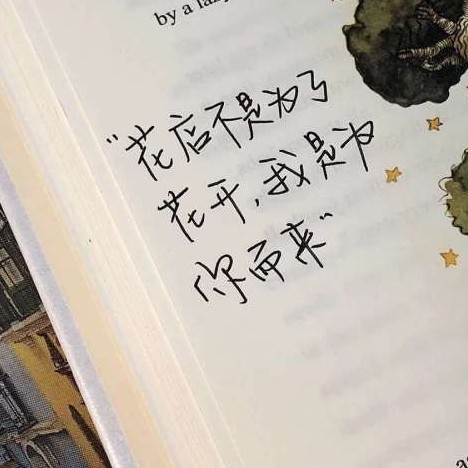 by a
"花店不是为了
花开,我是为
你而来"